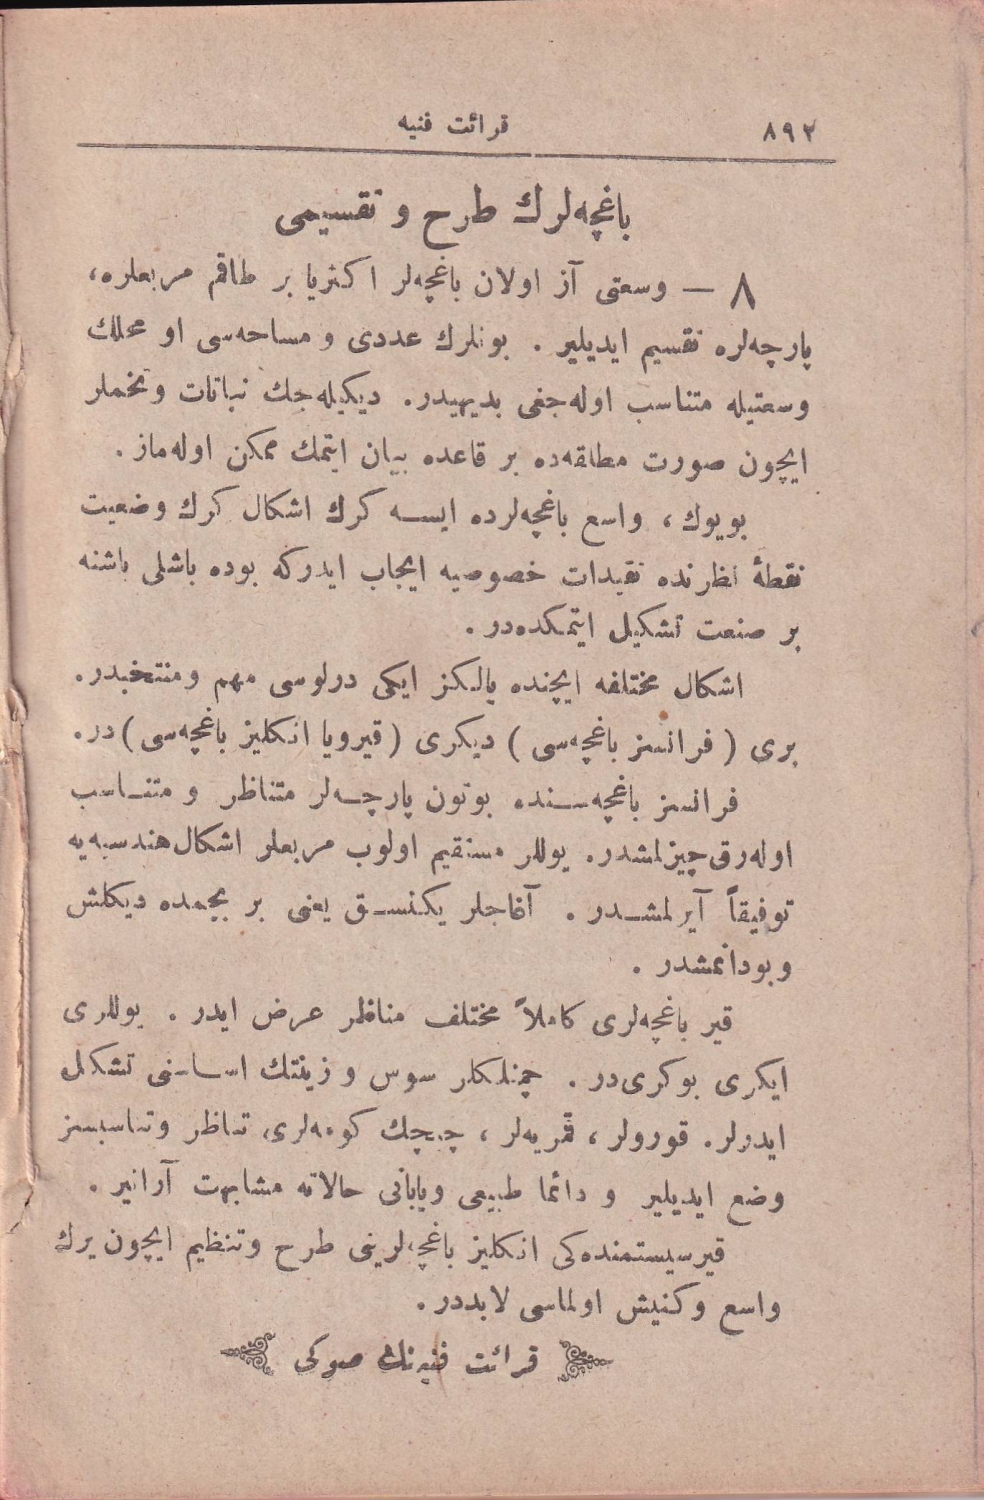 ٨٩٢
قرائت فنیه
باغچه‌لرك طرح و تقسیمی
٨ — وسعتی آز اولان باغچه‌لر اكثریا بر طاقم مربعلره،
پارچه‌لره تقسیم ایدیلیر . بونلرك عددی و مساحه‌سی او محللك
وسعتیله متناسب اوله‌جغی بدیهیدر. دیكیله‌جك نباتات وتخملر
ایچون صورت مطلقه‌ده بر قاعده بیان ایتمك ممكن اوله‌ماز .
بویوك ، واسع باغچه‌لرده ایسه كرك اشكال كرك وضعیت
نقطهٔ نظرنده تقیدات خصوصیه ایجاب ایدركه بوده باشلی باشنه
بر صنعت تشكیل ایتمكده‌در .
اشكال مختلفه ایچنده یالكز ایكی درلوسی مهم ومنتخبدر.
بری ( فرانسز باغچه‌سی ) دیكری ( قیرویا انكلیز باغچه‌سی ) در.
فرانسز باغچه‌سنده بوتون پارچه‌لر متناظر و متناسب
اوله‌رق چیزلمشدر. یوللر مستقیم اولوب مربعلر اشكال هندسیه‌یه
توفیقاً آیرلمشدر . آغاجلر یكنسق یعنی بر بیچمده دیكلش
وبودانمشدر .
قیر باغچه‌لری كاملاً مختلف مناظر عرض ایدر . یوللری
ایكری بوكری‌در . چمنلكلر سوس و زینتك اساسنی تشكل
ایدرلر. قورولر ، قمریه‌لر ، چیچك كومه‌لری تناظر وتناسبسز
وضع ایدیلیر و دائما طبیعی ویابانی حالاته مشابهت آرانیر .
قیرسیستمنده‌كی انكلیز باغچه‌لرینی طرح وتنظیم ایچون یرك
واسع وكنیش اولماسی لابددر .
قرائت فنیه‌نك صوكی